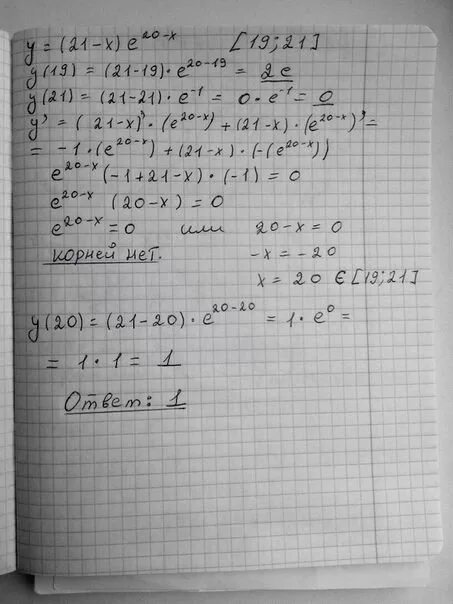 y = (21-x) e^{20-x} [19; 21]
y(19) = (21-19)·e^{20-19} = 2e
y(21) = (21-21)·e^{-1} = 0·e^{-1} = 0
y' = (21-x)'·(e^{20-x}) + (21-x)·(e^{20-x})' =
= -1·(e^{20-x}) + (21-x)·(-(e^{20-x}))
e^{20-x} (-1+21-x)·(-1) = 0
e^{20-x} (20-x) = 0
e^{20-x} = 0 или 20-x = 0
корней нет. -x = -20
x = 20 ∈ [19; 21]
y(20) = (21-20)·e^{20-20} = 1·e^0 =
= 1·1 = 1
Ответ: 1